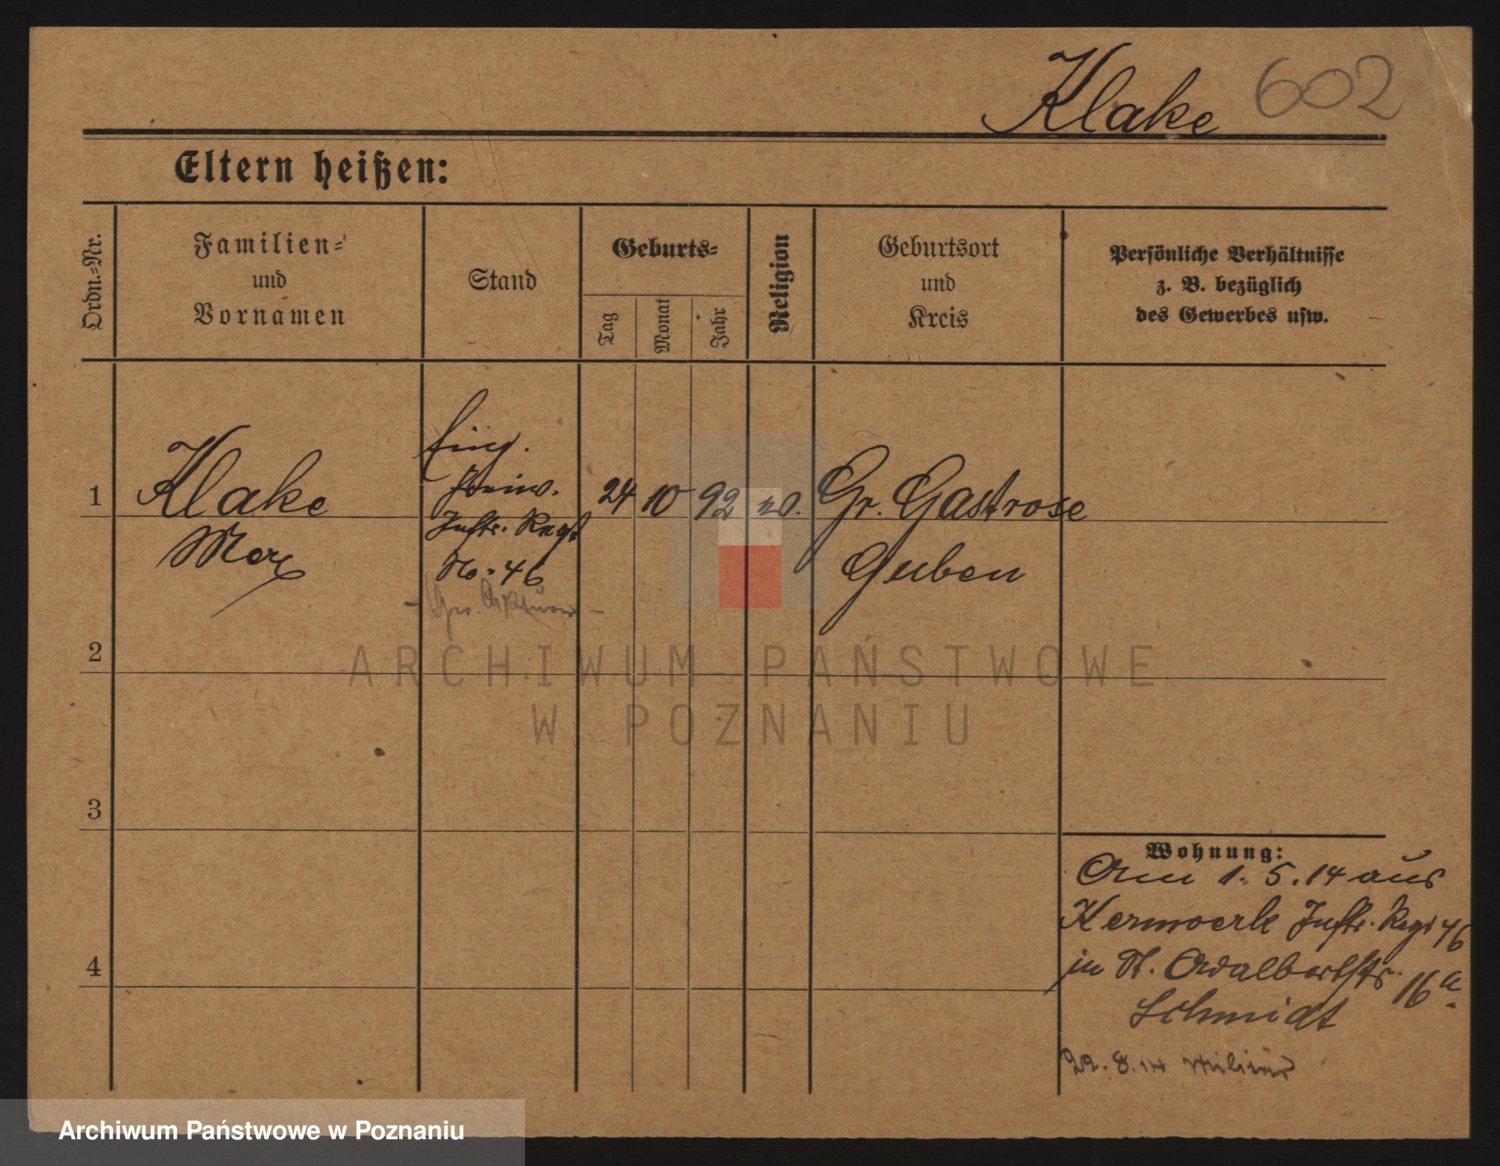 Klake 602
Eltern heißen:
Ordn.-Nr.
Familien-
und
Vornamen
Stand
Geburts-
Tag
Monat
Jahr
Religion
Geburtsort
und
Kreis
Persönliche Verhältnisse
z. B. bezüglich
des Gewerbes usw.
1
Klake
Max
Einj.
Freiw.
Inftr. Regt
No. 46
24 10 92 ev.
Gr. Gastrose
Guben
2
3
4
Wohnung:
Am 1. 5. 14 aus
Kernwerk Inftr. Regt 46
in St. Adalbertstr. 16a
Schmidt
22. 8. 14 Militär
ARCHIWUM PAŃSTWOWE
W POZNANIU
Archiwum Państwowe w Poznaniu